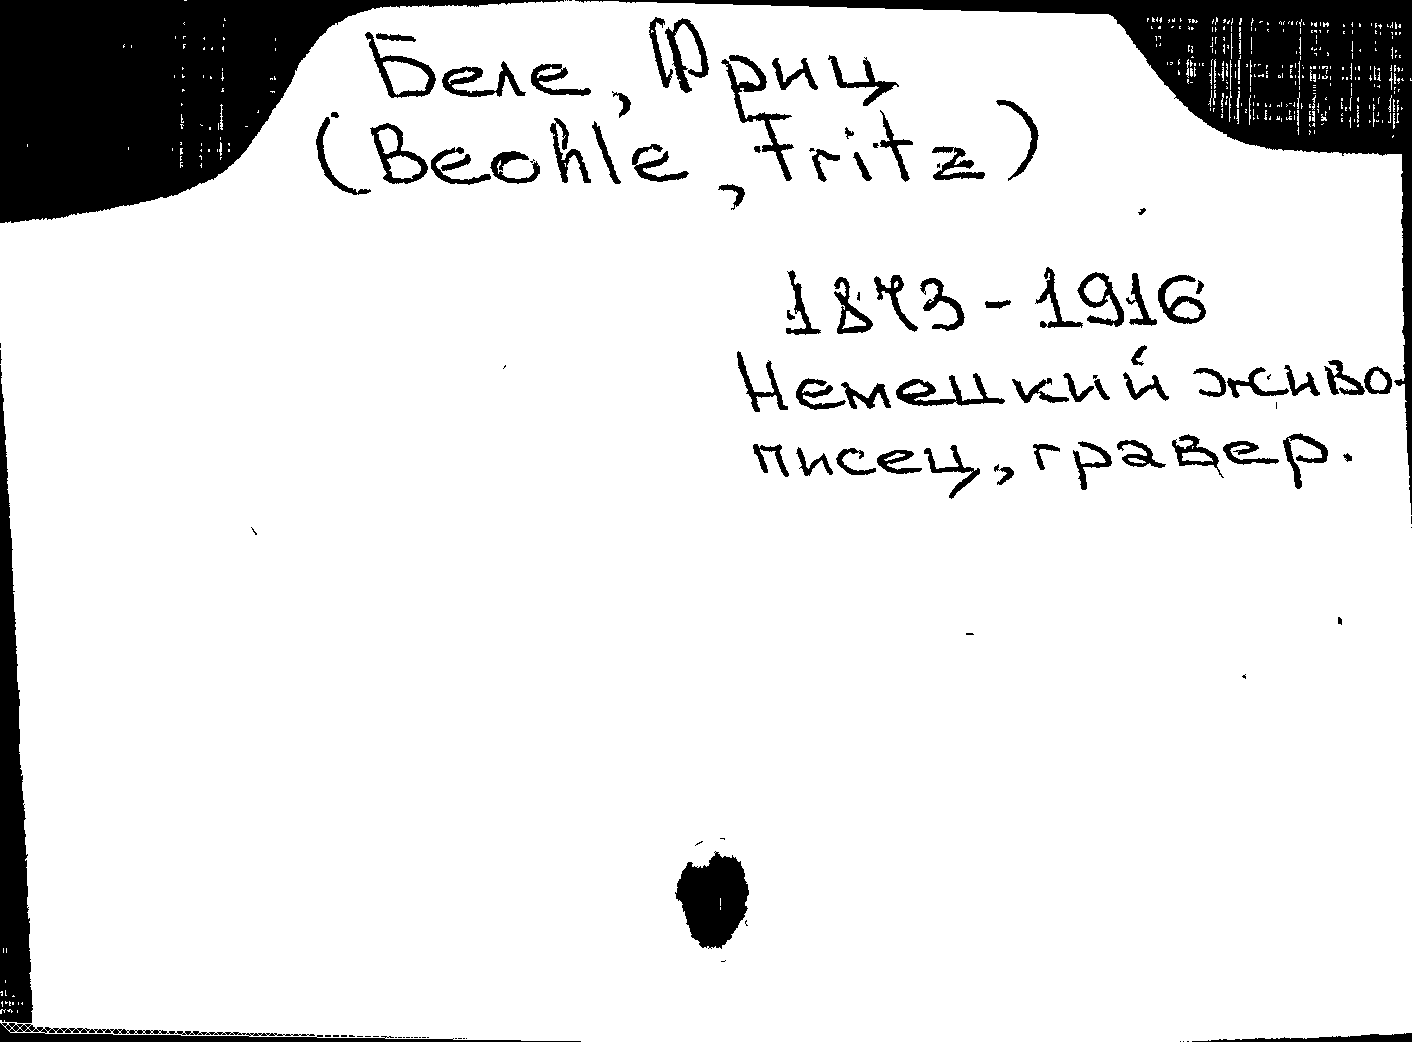 Беле, Фриц
(Beohle, Fritz)
1873-1916
Немецкий живо-
писец, гравер.